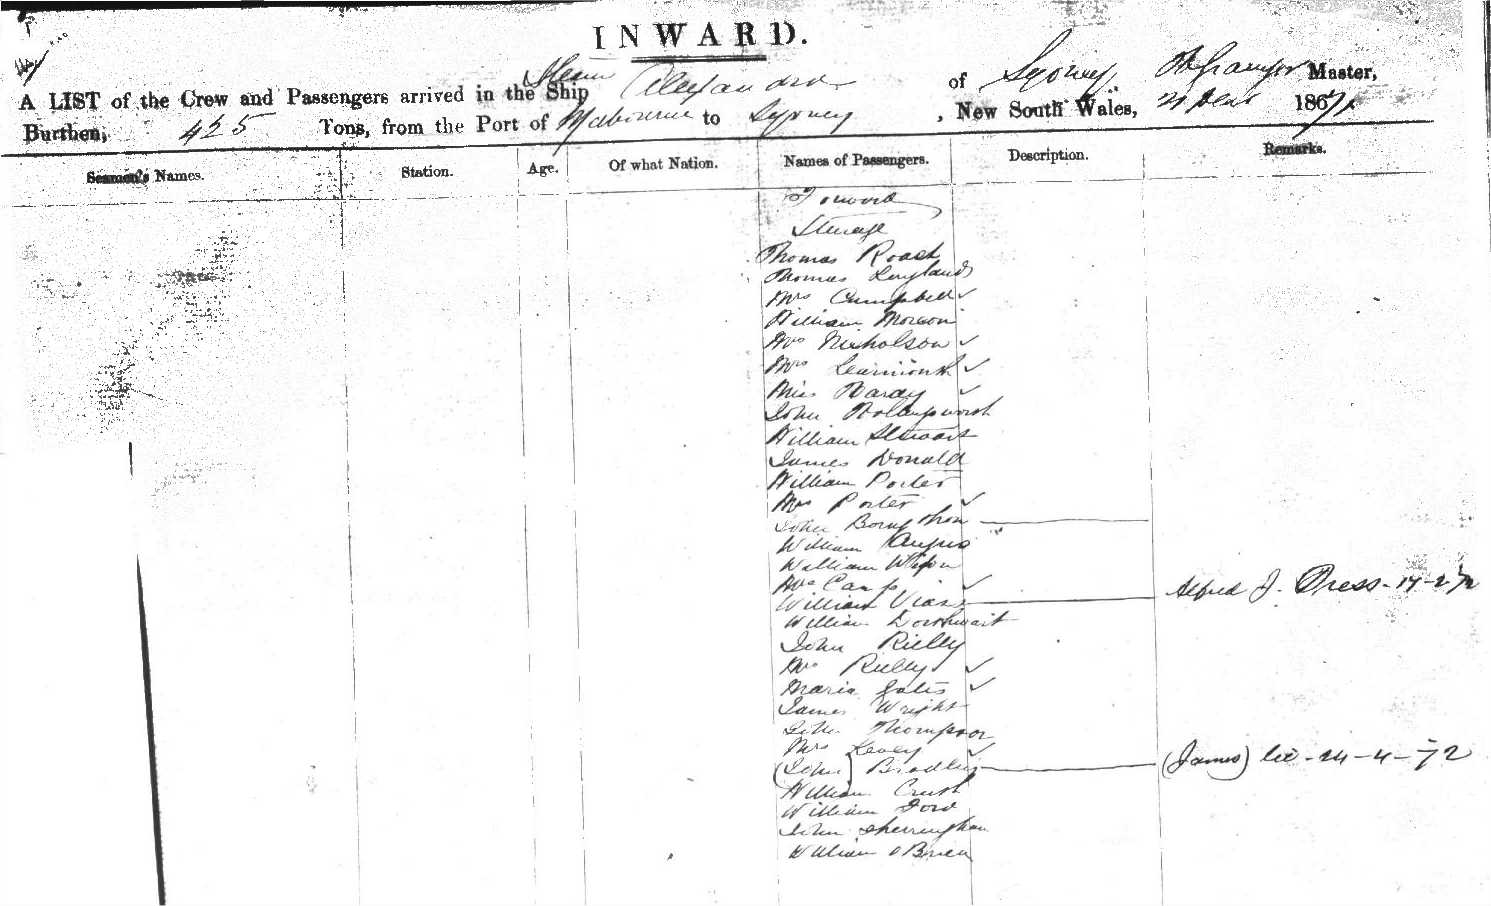 INWARD.
A LIST of the Crew and Passengers arrived in the Steam Ship Alexandra of Sydney, Master,
Burthen, 425 Tons, from the Port of Melbourne to Sydney, New South Wales, 21 1867
Seamen's Names. Station. Age. Of what Nation. Names of Passengers. Description. Remarks.
Forward
Steerage
Thomas Roach
Thomas
Mrs Campbell ✓
William
Mrs Nicholson ✓
Mrs Learmonth ✓
Miss Hardy ✓
John
William Stewart
James Donald
William Porter
Mrs Porter ✓
John
William Angus
William
Mrs Camp ✓
William Alfred J. Press - 17-2-72
William
John Rielly
Mrs Rielly ✓
Maria Gates ✓
James Wright
John Thompson
Mrs Levey ✓
(John) (James) - 24-4-72
William Crush
William Dow
John Sherringham
William O'Brien